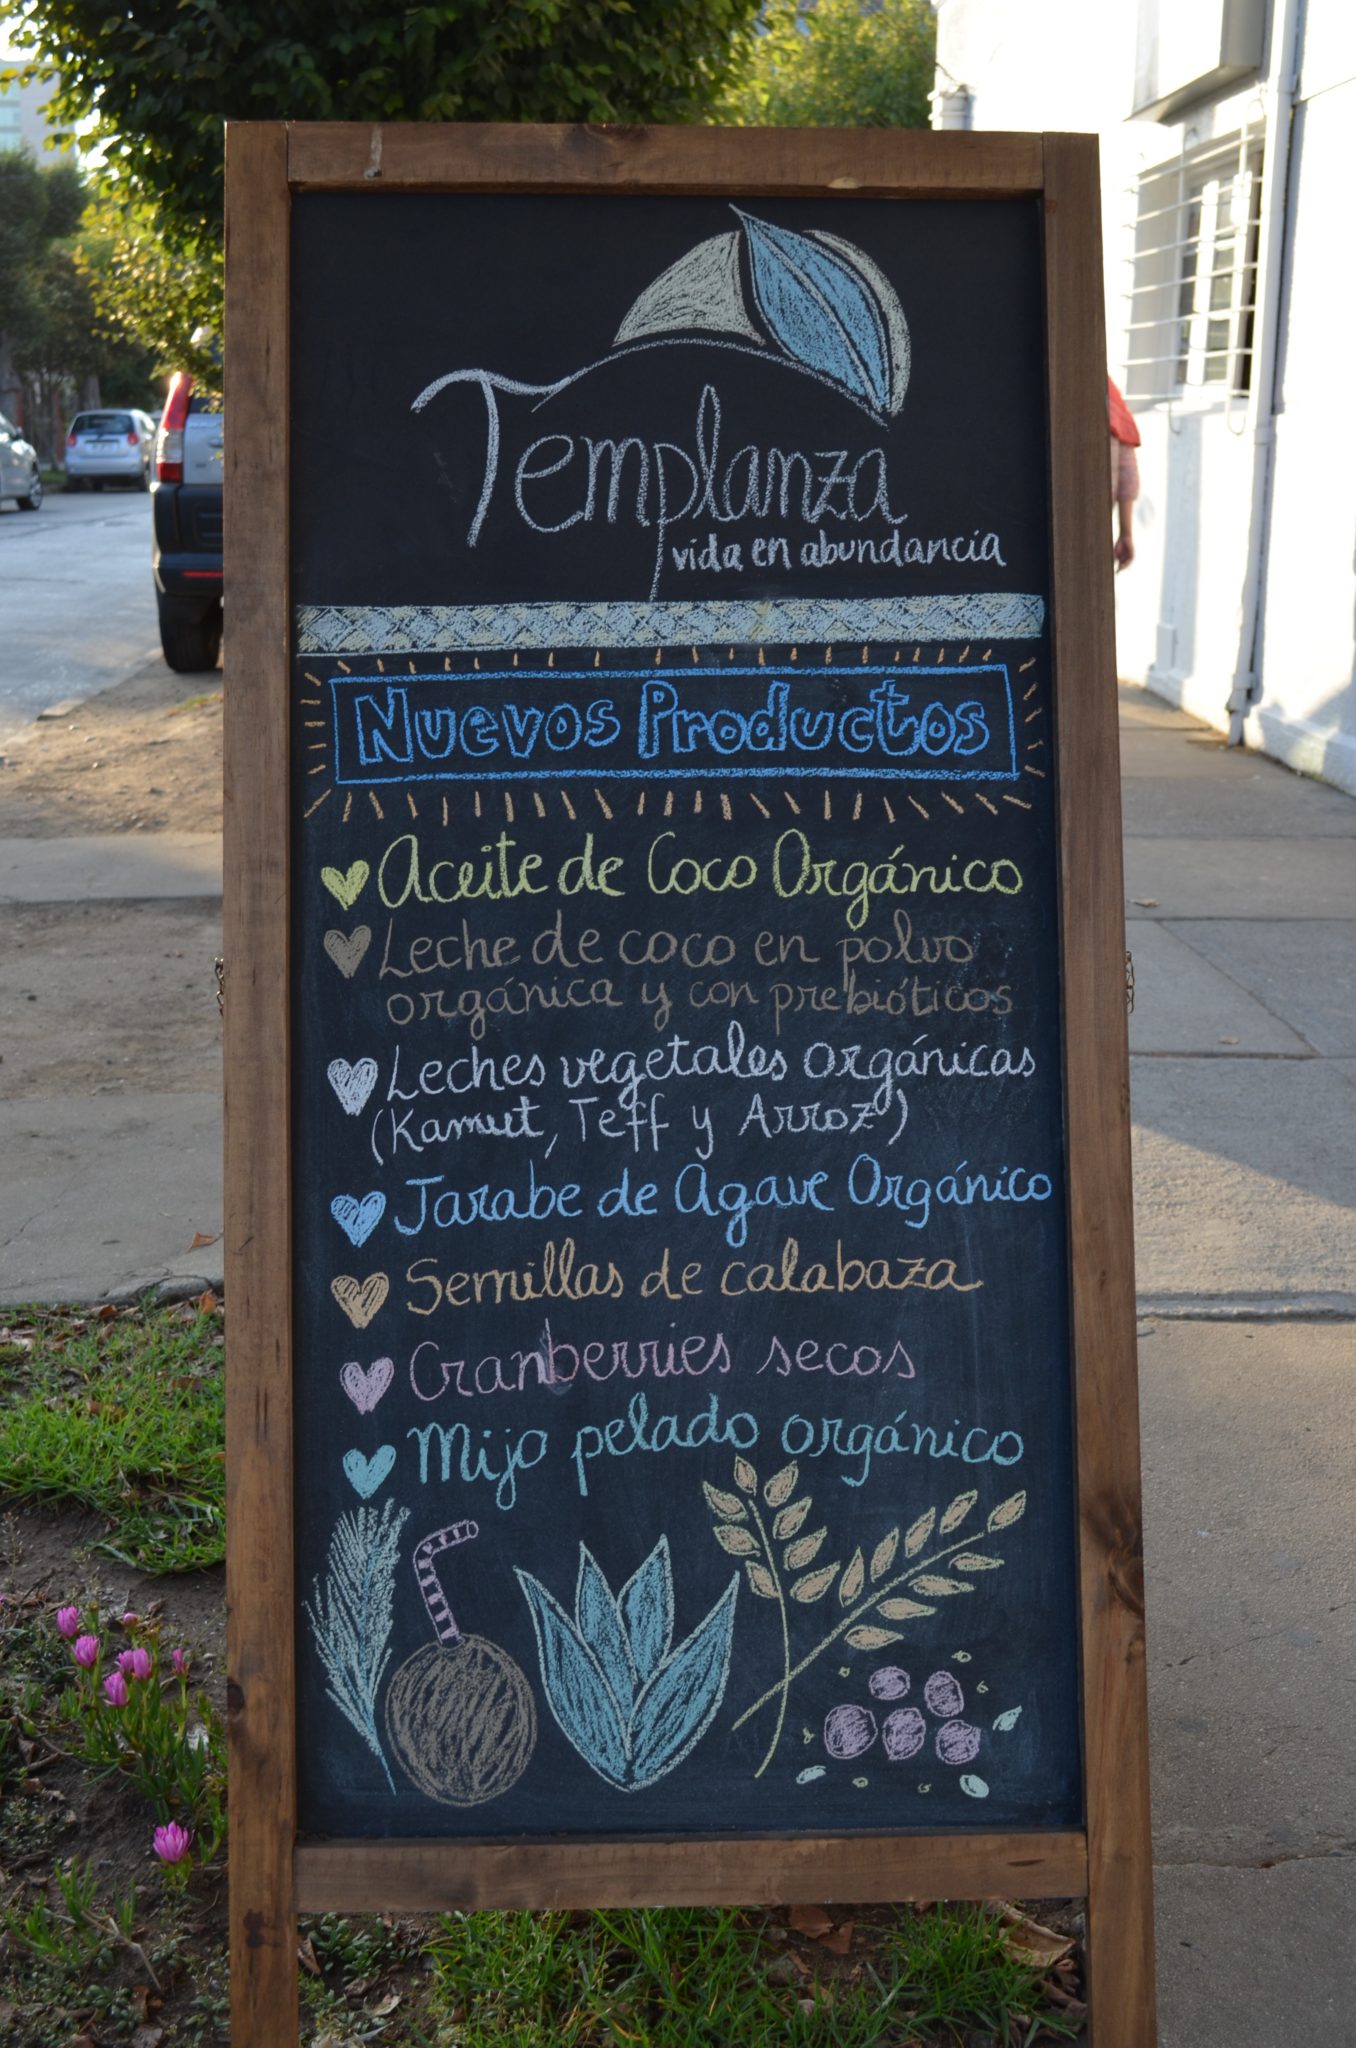 Templanza
vida en abundancia
Nuevos Productos
Aceite de Coco Orgánico
Leche de coco en polvo
orgánica y con prebióticos
Leches vegetales orgánicas
(Kamut, Teff y Arroz)
Jarabe de Agave Orgánico
Semillas de calabaza
Cranberries secos
Mijo pelado orgánico